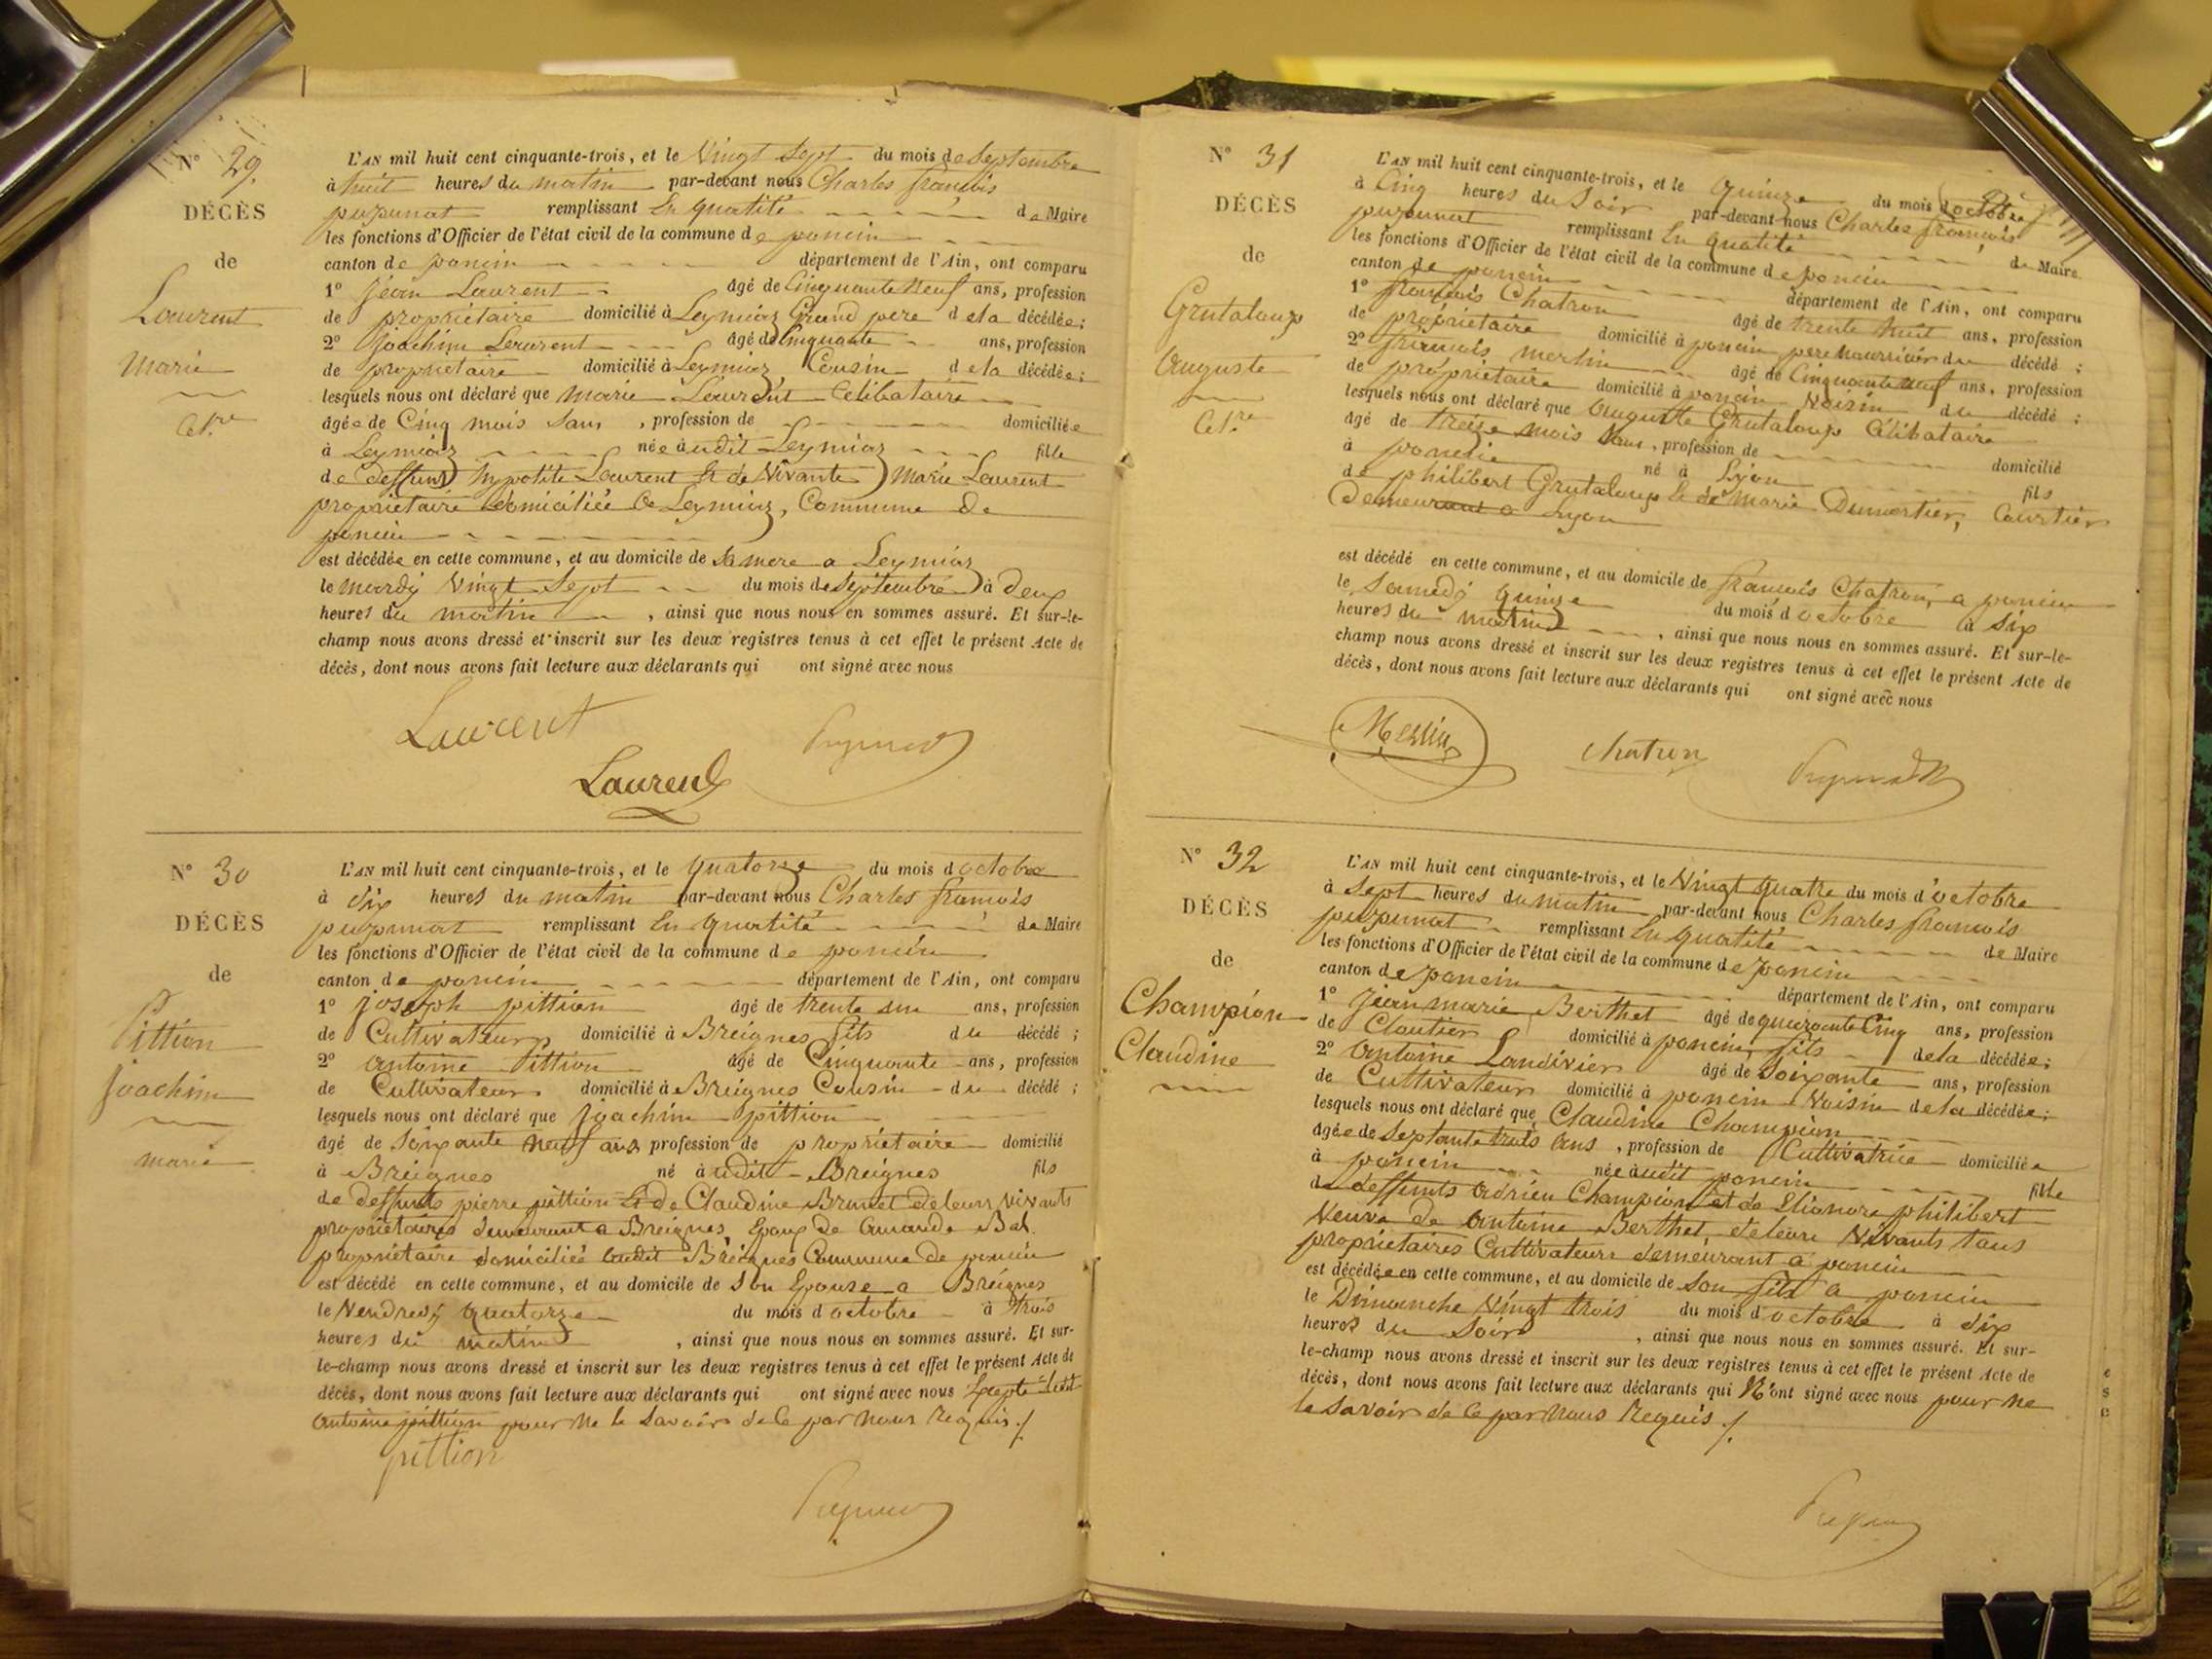 N° 29.
DÉCÈS
de
Laurent
Marie
Cel.re
L'AN mil huit cent cinquante-trois, et le Vingt Sept du mois de Septembre
à huit heures du matin par-devant nous Charles françois
puzunat remplissant En qualité de Maire
les fonctions d'Officier de l'état civil de la commune de poncin
canton de poncin département de l'Ain, ont comparu
1° Jean Laurent âgé de Cinquante Neuf ans, profession
de propriétaire domicilié à Leymiaz Grand pere de la décédée;
2° Joachim Laurent âgé de Cinquante ans, profession
de propriétaire domicilié à Leymiaz Cousin de la décédée;
lesquels nous ont déclaré que Marie Laurent Célibataire
âgée de Cinq mois Sans , profession de domiciliée
à Leymiaz née audit Leymiaz fille
de deffunt hypolite Laurent Et de Vivante Marie Laurent
propriétaire domiciliée à Leymiaz, Commune de
poncin
est décédée en cette commune, et au domicile de Sa mere a Leymiaz
le mardy Vingt Sept du mois de Septembre à deux
heures du matin , ainsi que nous nous en sommes assuré. Et sur-le-
champ nous avons dressé et inscrit sur les deux registres tenus à cet effet le présent Acte de
décès, dont nous avons fait lecture aux déclarants qui ont signé avec nous
Laurent
Laurent
N° 30
DÉCÈS
de
Pittion
Joachim
marié
L'AN mil huit cent cinquante-trois, et le quatorze du mois d'octobre
à dix heures du matin par-devant nous Charles françois
puzunat remplissant En qualité de Maire
les fonctions d'Officier de l'état civil de la commune de poncin
canton de poncin département de l'Ain, ont comparu
1° joseph pittion âgé de trente un ans, profession
de Cultivateur domicilié à Breignes fils du décédé;
2° antoine Pittion âgé de Cinquante ans, profession
de Cultivateur domicilié à Breignes Cousin du décédé;
lesquels nous ont déclaré que Joachim pittion
âgé de Soixante neuf ans profession de propriétaire domicilié
à Breignes né audit Breignes fils
de deffunts pierre pittion Et de Claudine Brunet de leurs vivants
propriétaires demeurant a Breignes, Epoux de Amande Bal
propriétaire domiciliée audit Breignes Commune de poncin
est décédé en cette commune, et au domicile de Son Epouse a Breignes
le Vendredy quatorze du mois d'octobre à trois
heures du matin , ainsi que nous nous en sommes assuré. Et sur-
le-champ nous avons dressé et inscrit sur les deux registres tenus à cet effet le présent Acte de
décès, dont nous avons fait lecture aux déclarants qui ont signé avec nous Excepté ledit
antoine pittion pour ne le Savoir de Ce par Nous Requis ./.
pittion
N° 31
DÉCÈS
de
Grutaloup
Auguste
Cel.re
L'AN mil huit cent cinquante-trois, et le quinze du mois d'octobre
à Cinq heures du Soir par-devant nous Charles françois
puzunat remplissant En qualité de Maire
les fonctions d'Officier de l'état civil de la commune de poncin
canton de poncin département de l'Ain, ont comparu
1° françois Chatron âgé de trente huit ans, profession
de propriétaire domicilié à poncin pere Nourricier du décédé;
2° françois merlin âgé de Cinquante neuf ans, profession
de propriétaire domicilié à poncin Voisin du décédé;
lesquels nous ont déclaré que Auguste Grutaloup Célibataire
âgé de treize mois Sans , profession de domicilié
à poncin né à Lyon fils
de philibert Grutaloup Et de Marie Dumortier, Courtier
Demeurant a Lyon
est décédé en cette commune, et au domicile de françois Chatron, a poncin
le Samedy quinze du mois d'octobre à Six
heures du matin , ainsi que nous nous en sommes assuré. Et sur-le-
champ nous avons dressé et inscrit sur les deux registres tenus à cet effet le présent Acte de
décès, dont nous avons fait lecture aux déclarants qui ont signé avec nous
Merlin
Chatron
N° 32
DÉCÈS
de
Champion
Claudine
L'AN mil huit cent cinquante-trois, et le Vingt quatre du mois d'octobre
à Sept heures du matin par-devant nous Charles françois
puzunat remplissant En qualité de Maire
les fonctions d'Officier de l'état civil de la commune de poncin
canton de poncin département de l'Ain, ont comparu
1° Jean marie Berthet âgé de quarante Cinq ans, profession
de Cloutier domicilié à poncin, fils de la décédée;
2° Antoine Landivier âgé de Soixante ans, profession
de Cultivateur domicilié à poncin Voisin de la décédée;
lesquels nous ont déclaré que Claudine Champion
âgée de Septante trois ans , profession de Cultivatrice domiciliée
à poncin née audit poncin fille
de deffunts Adrien Champion et de Eléonore philibert
Veuve de Antoine Berthet, de leurs Vivants tous
propriétaires Cultivateurs demeurant a poncin
est décédée en cette commune, et au domicile de Son fils a poncin
le Dimanche Vingt trois du mois d'octobre à dix
heures du Soir , ainsi que nous nous en sommes assuré. Et sur-
le-champ nous avons dressé et inscrit sur les deux registres tenus à cet effet le présent Acte de
décès, dont nous avons fait lecture aux déclarants qui N'ont signé avec nous pour ne
le Savoir de Ce par Nous Requis ./.